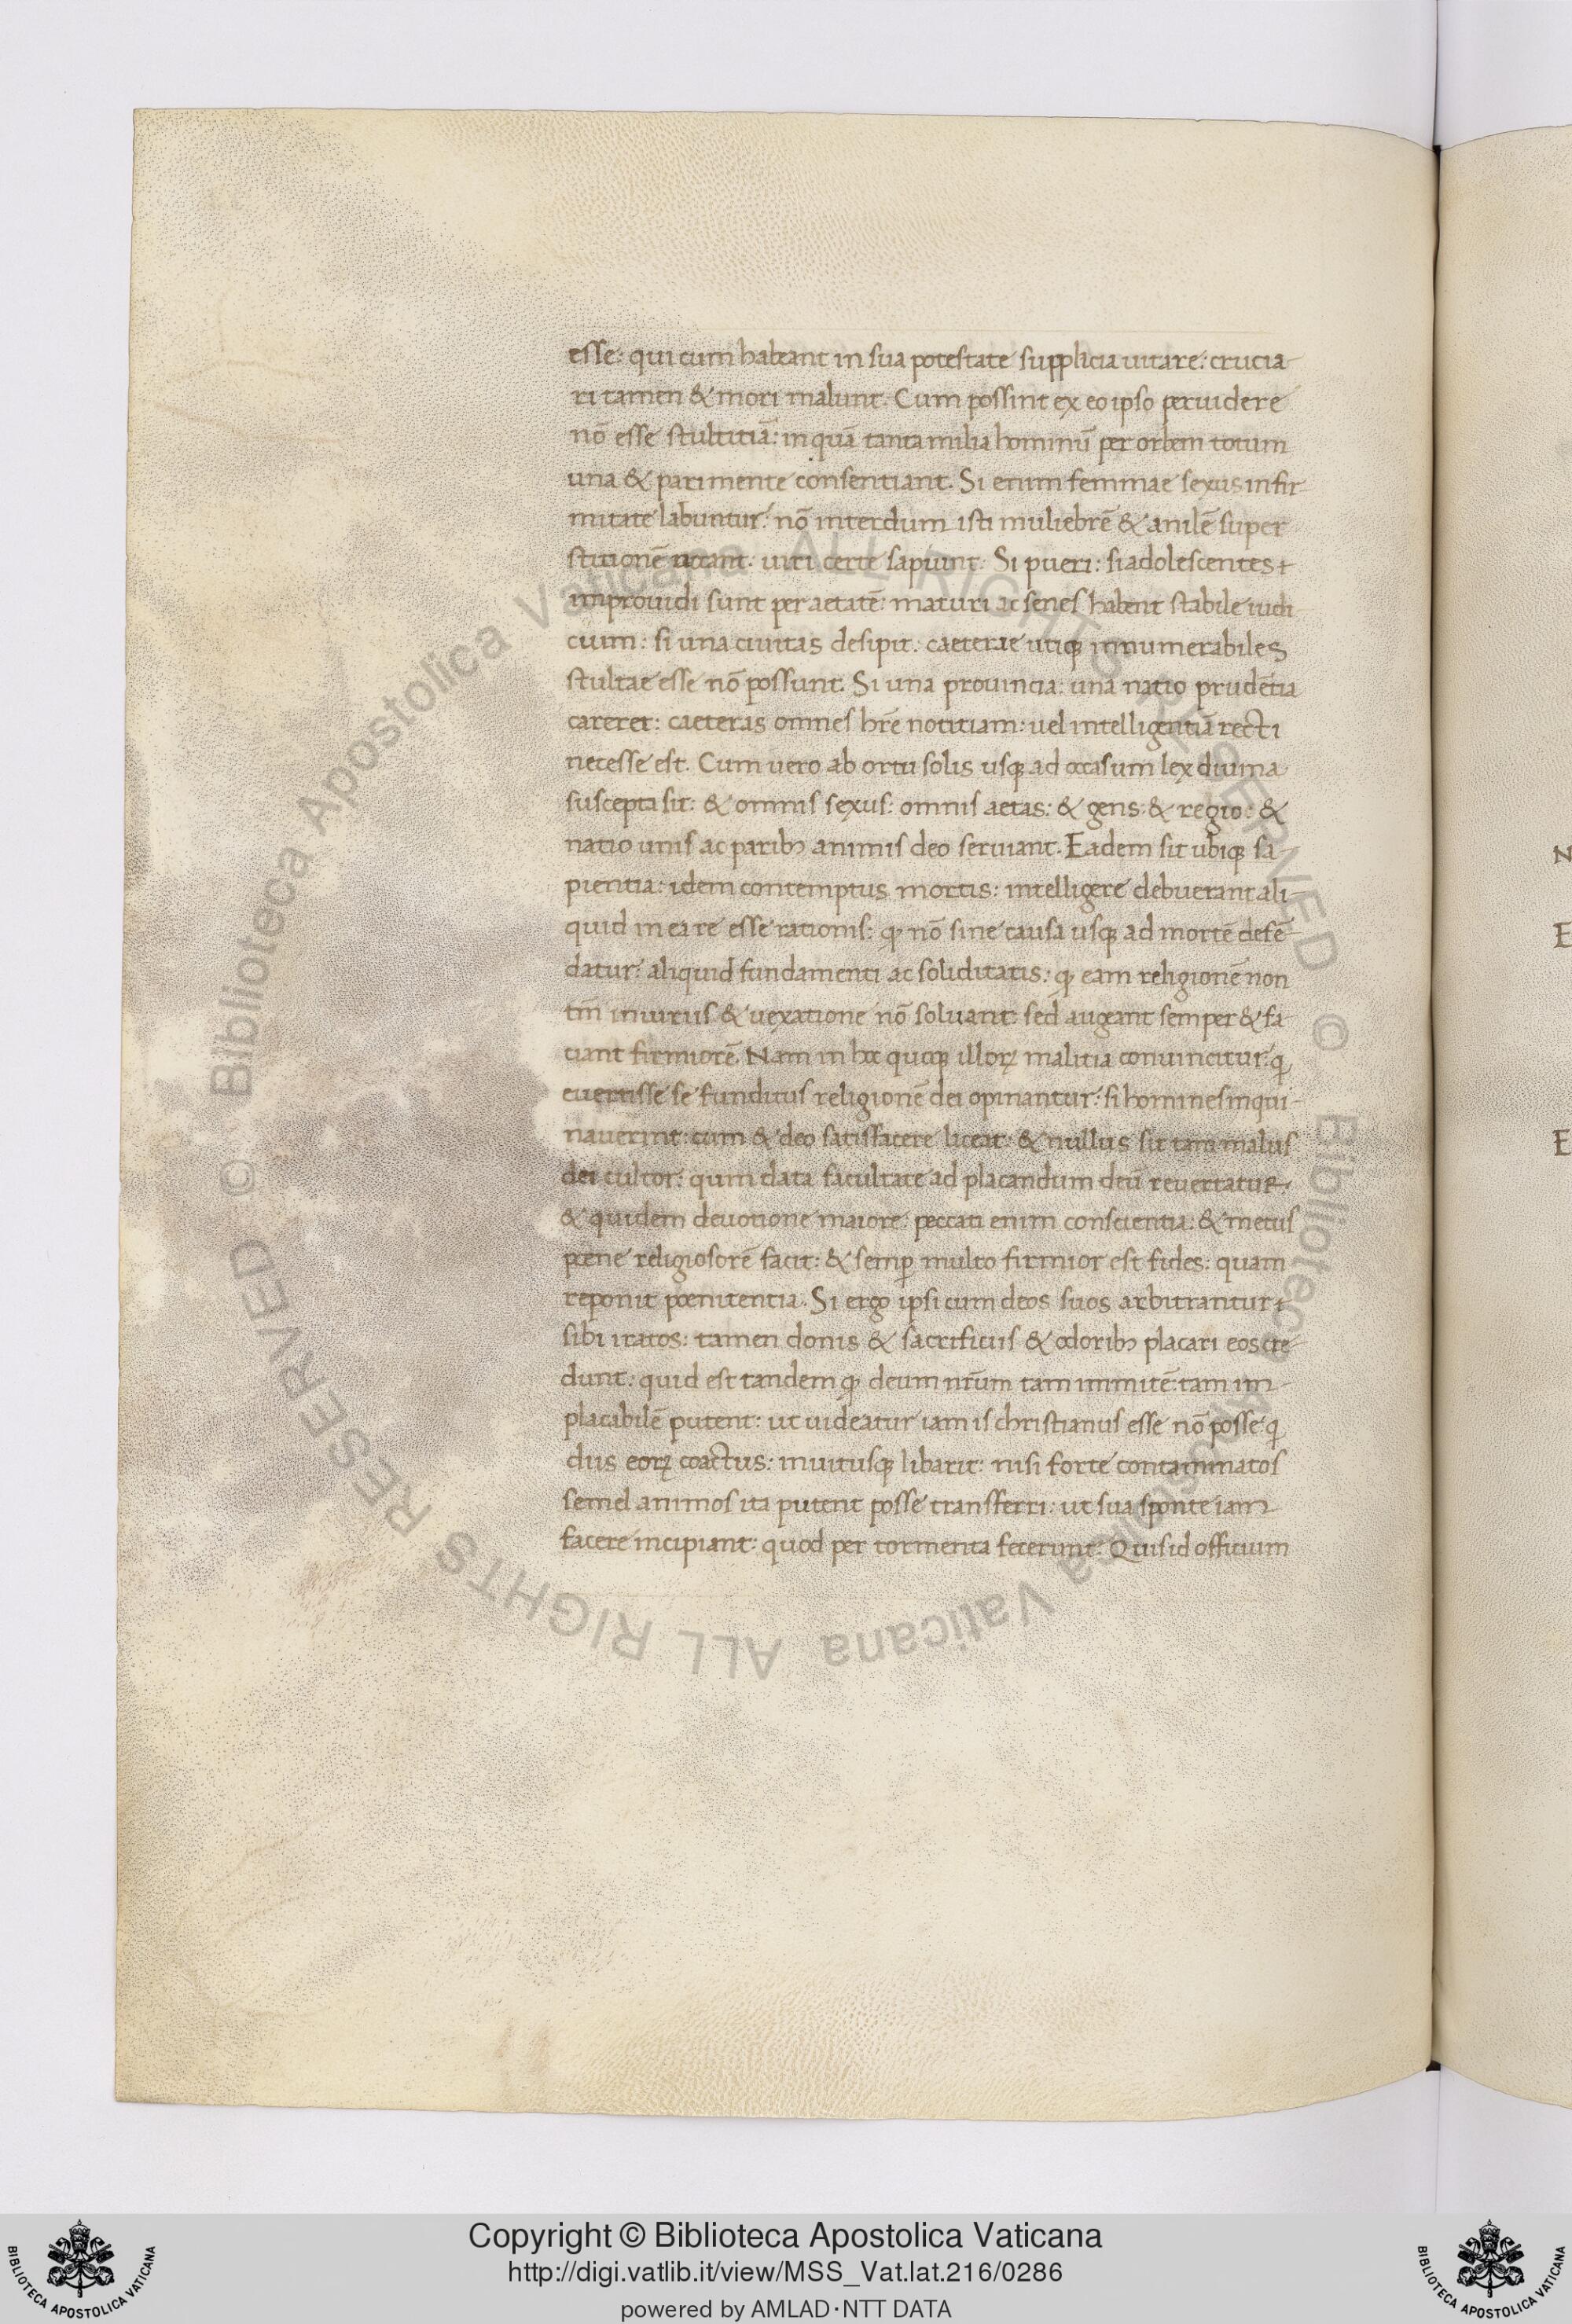 esse: qui cum habeant in sua potestate supplicia uitare: crucia-
ri tamen & mori malunt. Cum possint ex eo ipso peruidere
nō esse stultitiā: in quā tanta milia hominū per orbem totum
una & pari mente consentiant. Si enim feminae sexus infir-
mitate labuntur: nō interdum isti muliebrē & anilē super
stitionē uocant: uiri certe sapiunt. Si pueri: si adolescentes
improuidi sunt per aetatē: maturi ac senes habent stabile iudi
cium: si una ciuitas desipit: caeterae utiqꝫ innumerabiles
stultae esse nō possunt. Si una prouincia: una natio prudētia
careret: caeteras omnes hr̄e notitiam: uel intelligentiā recti
necesse est. Cum uero ab ortu solis usqꝫ ad occasum lex diuina
suscepta sit: & omnis sexus: omnis aetas: & gens: & regio: &
natio unis ac paribꝫ animis deo seruiant. Eadem sit ubiqꝫ sa-
pientia: idem contemptus mortis: intelligere debuerant ali-
quid in ea re esse rationis: ꝙ nō sine causa usqꝫ ad mortē defē
datur: aliquid fundamenti ac soliditatis: ꝙ eam religionē non
tm̄ iniuriis & uexatione nō soluant: sed augeant semper & fa
ciant firmiorē. Nam in hoc quoqꝫ illoꝝ malitia conuincitur: q
euertisse se funditus religionē dei opinantur: si homines inqui-
nauerint: cum & deo satisfacere liceat: & nullus sit tam malus
dei cultor: qum data facultate ad placandum deū reuertatur.
& quidem deuotione maiore: peccati enim conscientia: & metus
poene religiosorē facit: & semp̱ multo firmior est fides: quam
reponit poenitentia. Si ergo ipsi cum deos suos arbitrantur
sibi iratos: tamen donis & sacrificiis & odoribꝫ placari eos cre-
dunt: quid est tandem ꝙ deum nr̄um tam immitē: tam im-
placabilē putent: ut uideatur iam is christianus esse nō posse: q
diis eoꝝ coactus: inuitusqꝫ libarit: nisi forte contaminatos
semel animos ita putent posse transferri: ut sua sponte iam
facere incipiant: quod per tormenta fecerint. Quis id officium
N
E
E
© Biblioteca Apostolica Vaticana ALL RIGHTS RESERVED © Biblioteca Apostolica Vaticana ALL RIGHTS RESERVED
BIBLIOTECA APOSTOLICA VATICANA
Copyright © Biblioteca Apostolica Vaticana
http://digi.vatlib.it/view/MSS_Vat.lat.216/0286
powered by AMLAD·NTT DATA
BIBLIOTECA APOSTOLICA VATICANA